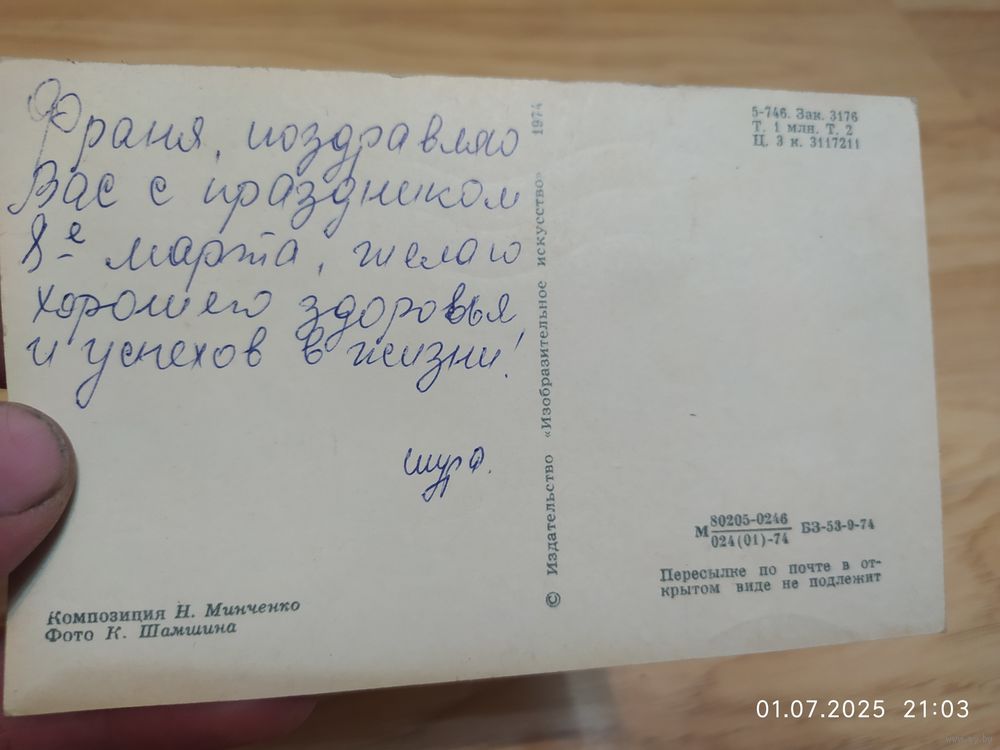 Франя, поздравляю
Вас с праздником
8-е марта, желаю
хорошего здоровья
и успехов в жизни!
шура.
Композиция Н. Минченко
Фото К. Шамшина
© Издательство «Изобразительное искусство» 1974
5-746. Зак. 3176
Т. 1 млн. Т. 2
Ц. 3 к. 3117211
М 80205-0246 БЗ-53-9-74
024(01)-74
Пересылке по почте в от-
крытом виде не подлежит
01.07.2025 21:03